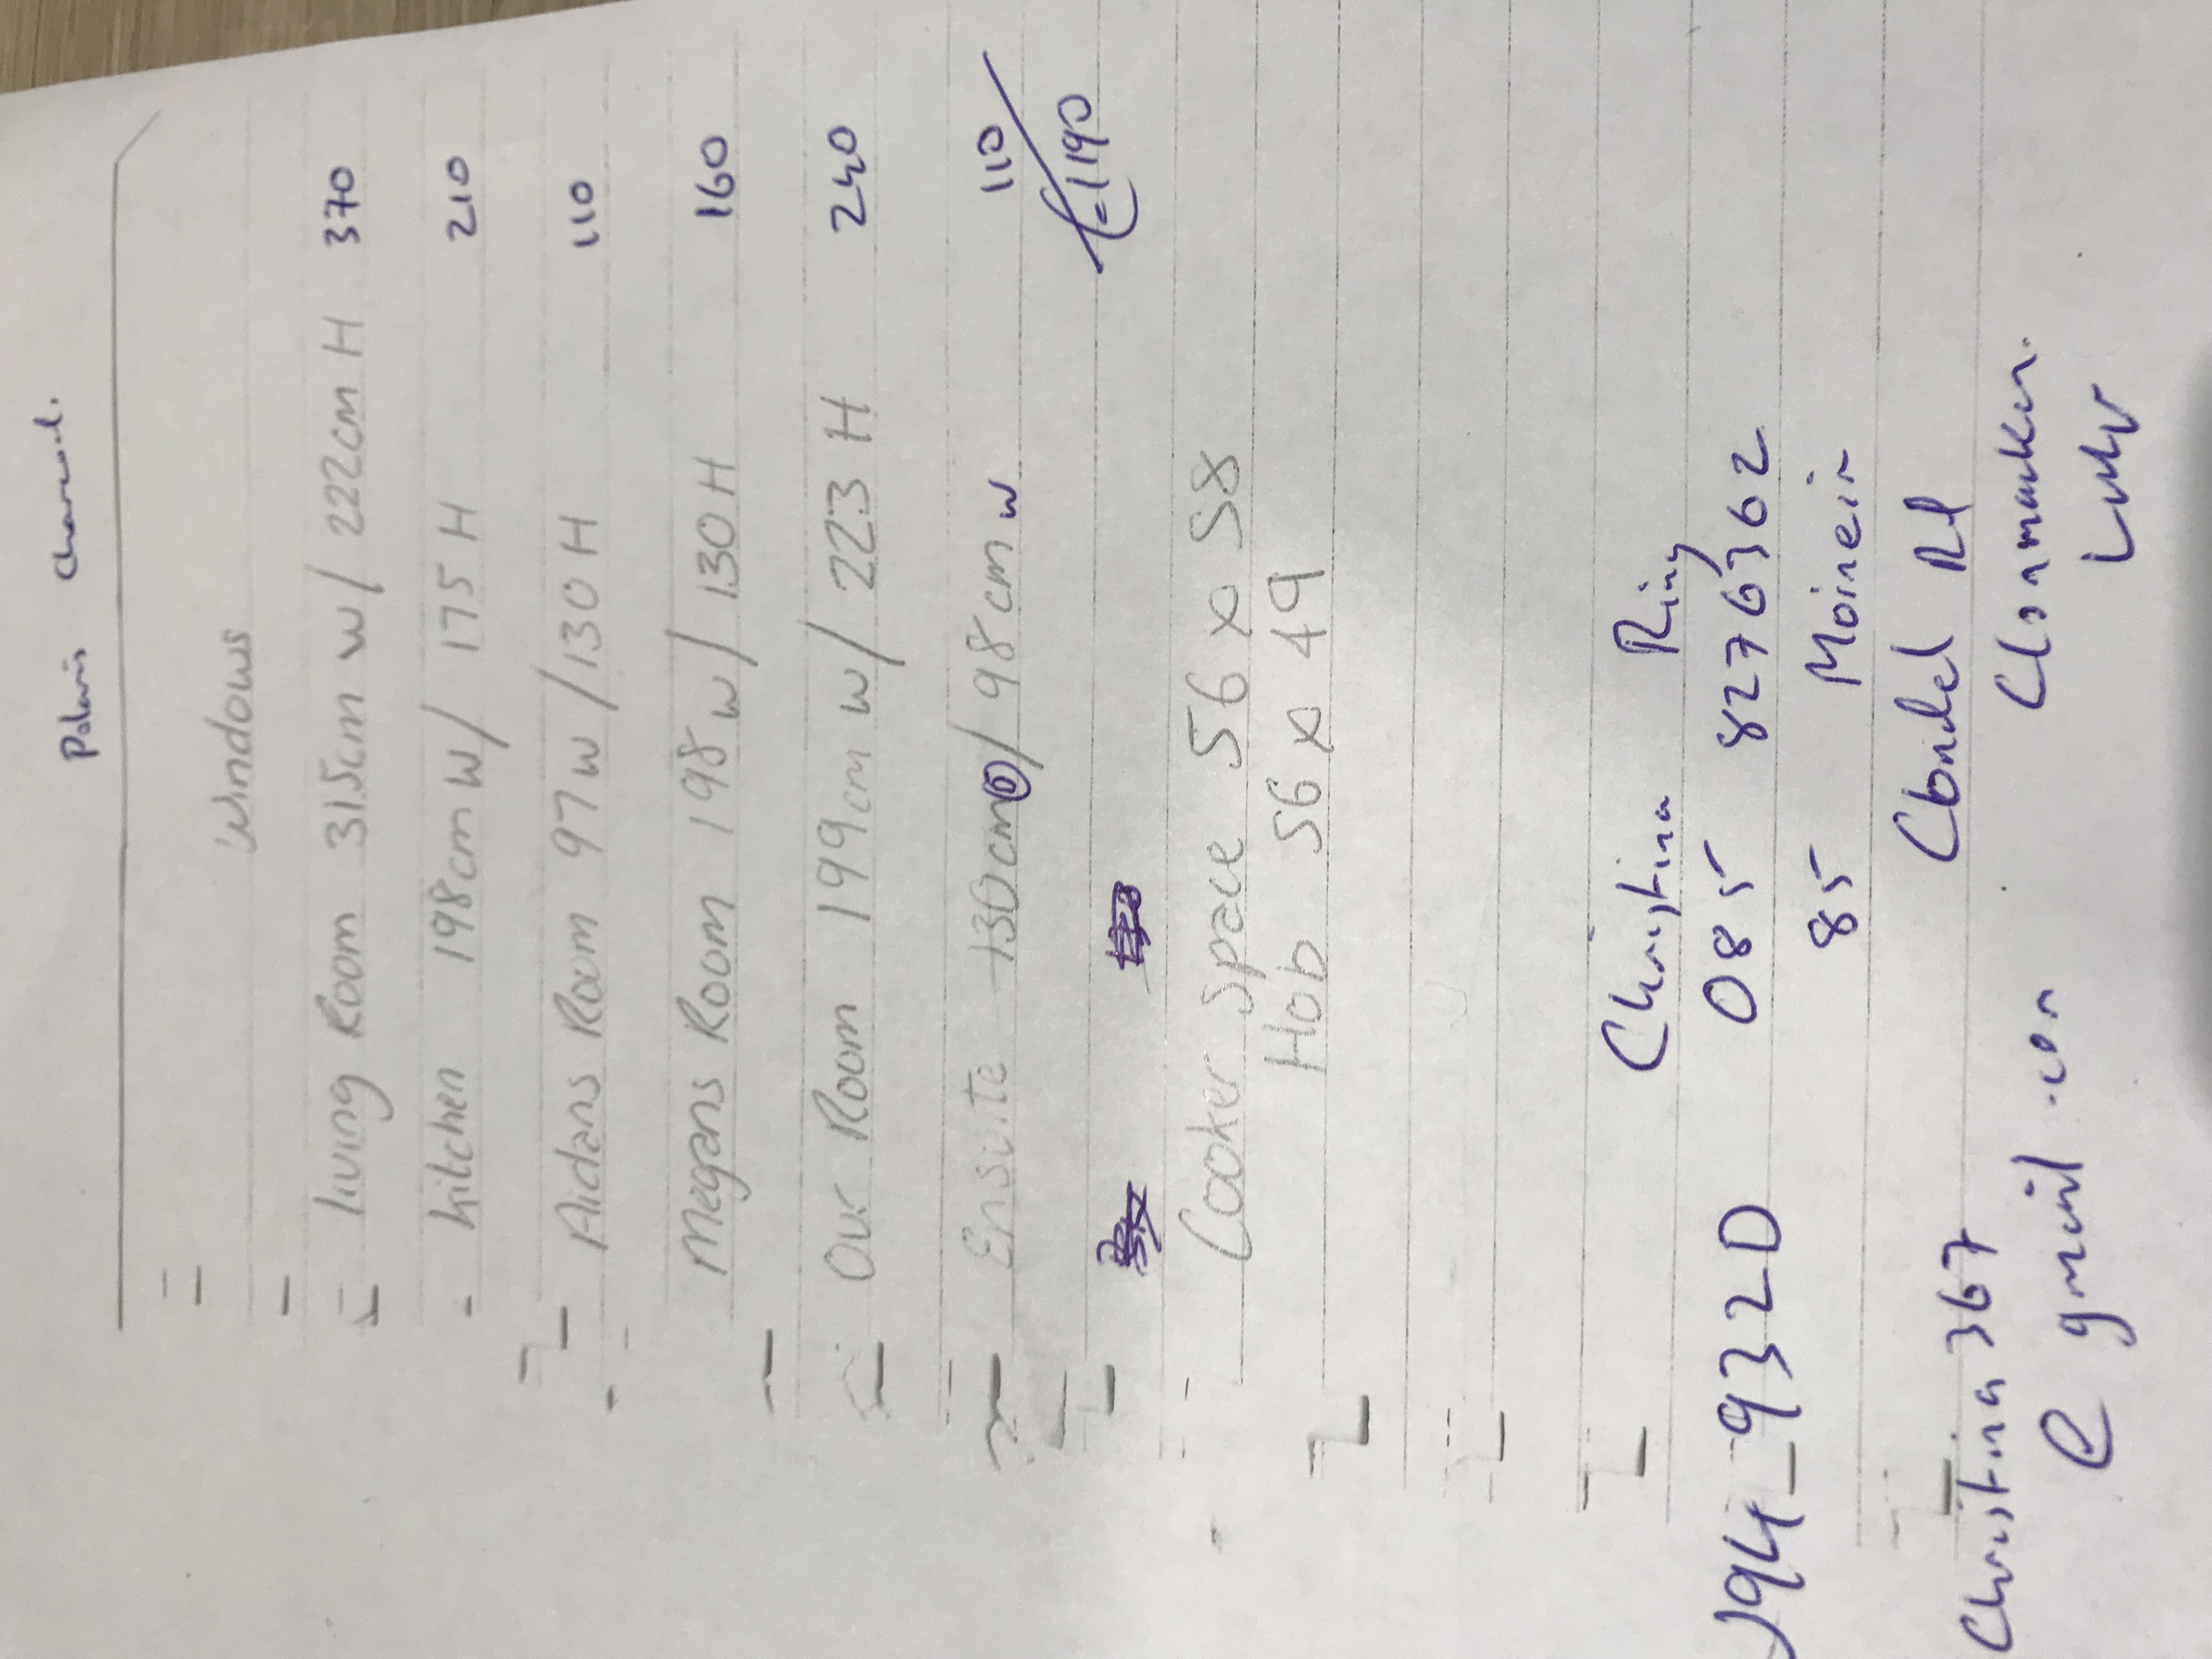 Polaris Charcoal.
Windows
living Room 315cm W/ 222cm H 370
kitchen 198cm W/ 175 H 210
Aidans Room 97 W/130 H 110
Megans Room 198 W/ 130 H 160
Our Room 199cm W/ 223 H 240
Ensuite 130cm / 98cm W 110
€1190
Cooker Space 56 x 58
Hob 56 x 49
Christina Ring
085 8276362
85 Moinein
V94_932D
Christina367
@ gmail.com